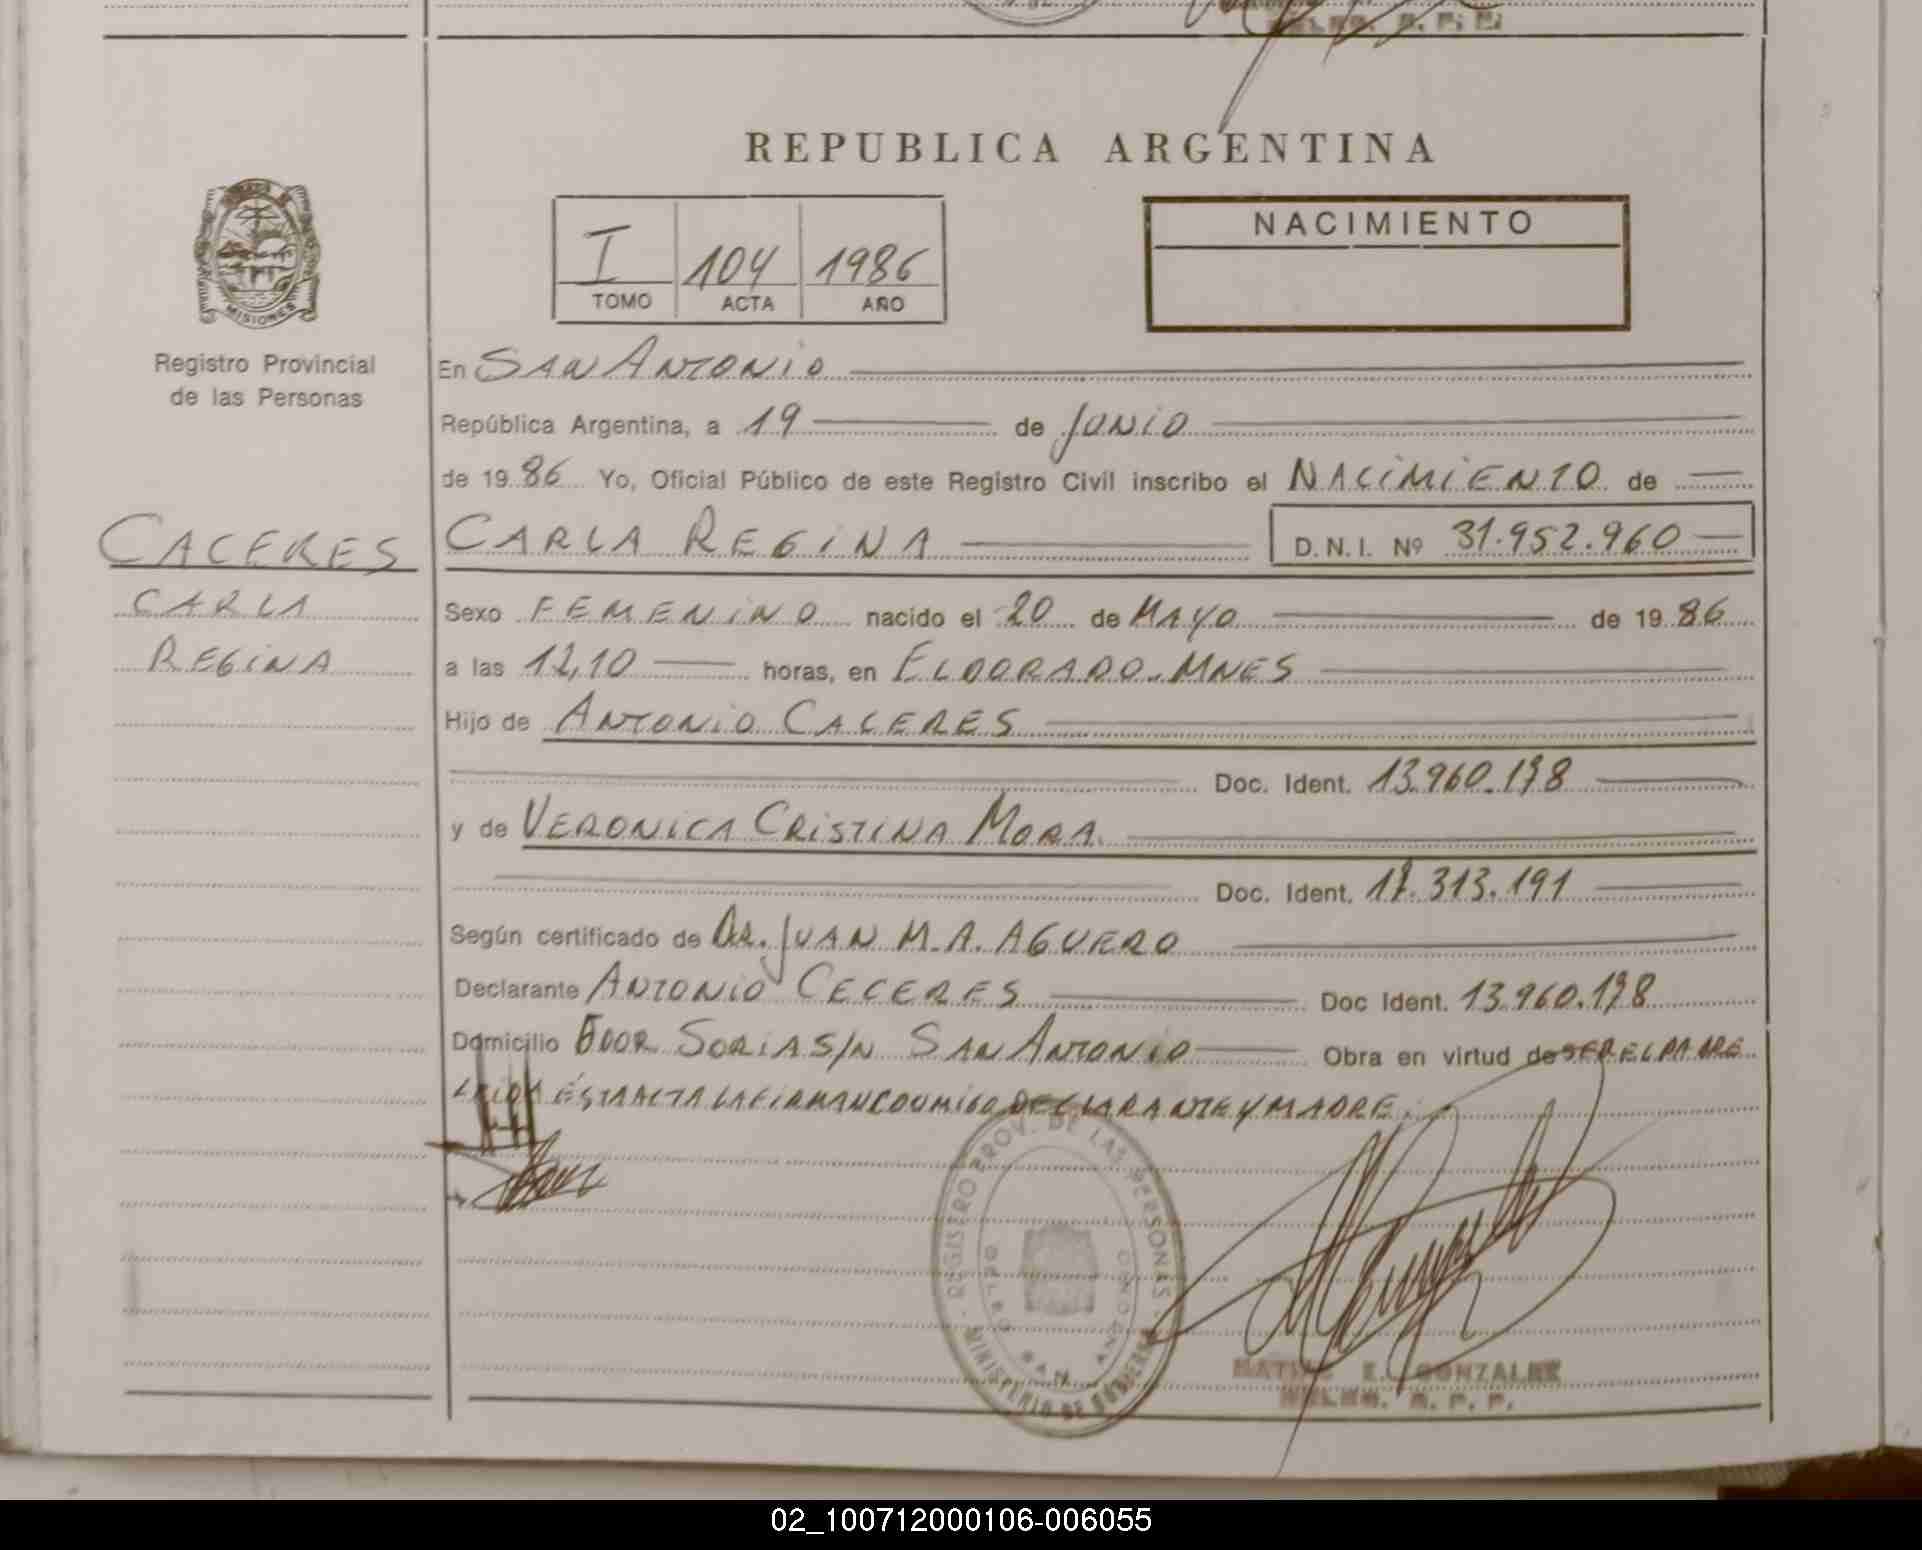 REPUBLICA ARGENTINA
NACIMIENTO
I 104 1986
TOMO ACTA AÑO
MISIONES
Registro Provincial
de las Personas
CACERES
CARLA
REGINA
En SAN ANTONIO
República Argentina, a 19 de JUNIO
de 19 86 Yo, Oficial Público de este Registro Civil inscribo el NACIMIENTO de
CARLA REGINA D.N.I. Nº 31.952.960
Sexo FEMENINO nacido el 20 de MAYO de 19 86
a las 12,10 horas, en ELDORADO. MNES
Hijo de ANTONIO CACERES
Doc. Ident. 13.960.178
y de VERONICA CRISTINA MORA.
Doc. Ident. 17.313.191
Según certificado de DR. JUAN M.A. AGUERO
Declarante ANTONIO CECERES Doc Ident. 13.960.178
Domicilio SORIA S/N SAN ANTONIO Obra en virtud de SER EL PADRE
ESTA ACTA LA FIRMAN CONMIGO DECLARANTE Y MADRE.
REGISTRO PROV. DE LAS PERSONAS
MINISTERIO DE GOBIERNO
SAN ANTONIO
E. GONZALEZ
R. P. P.
02_100712000106-006055